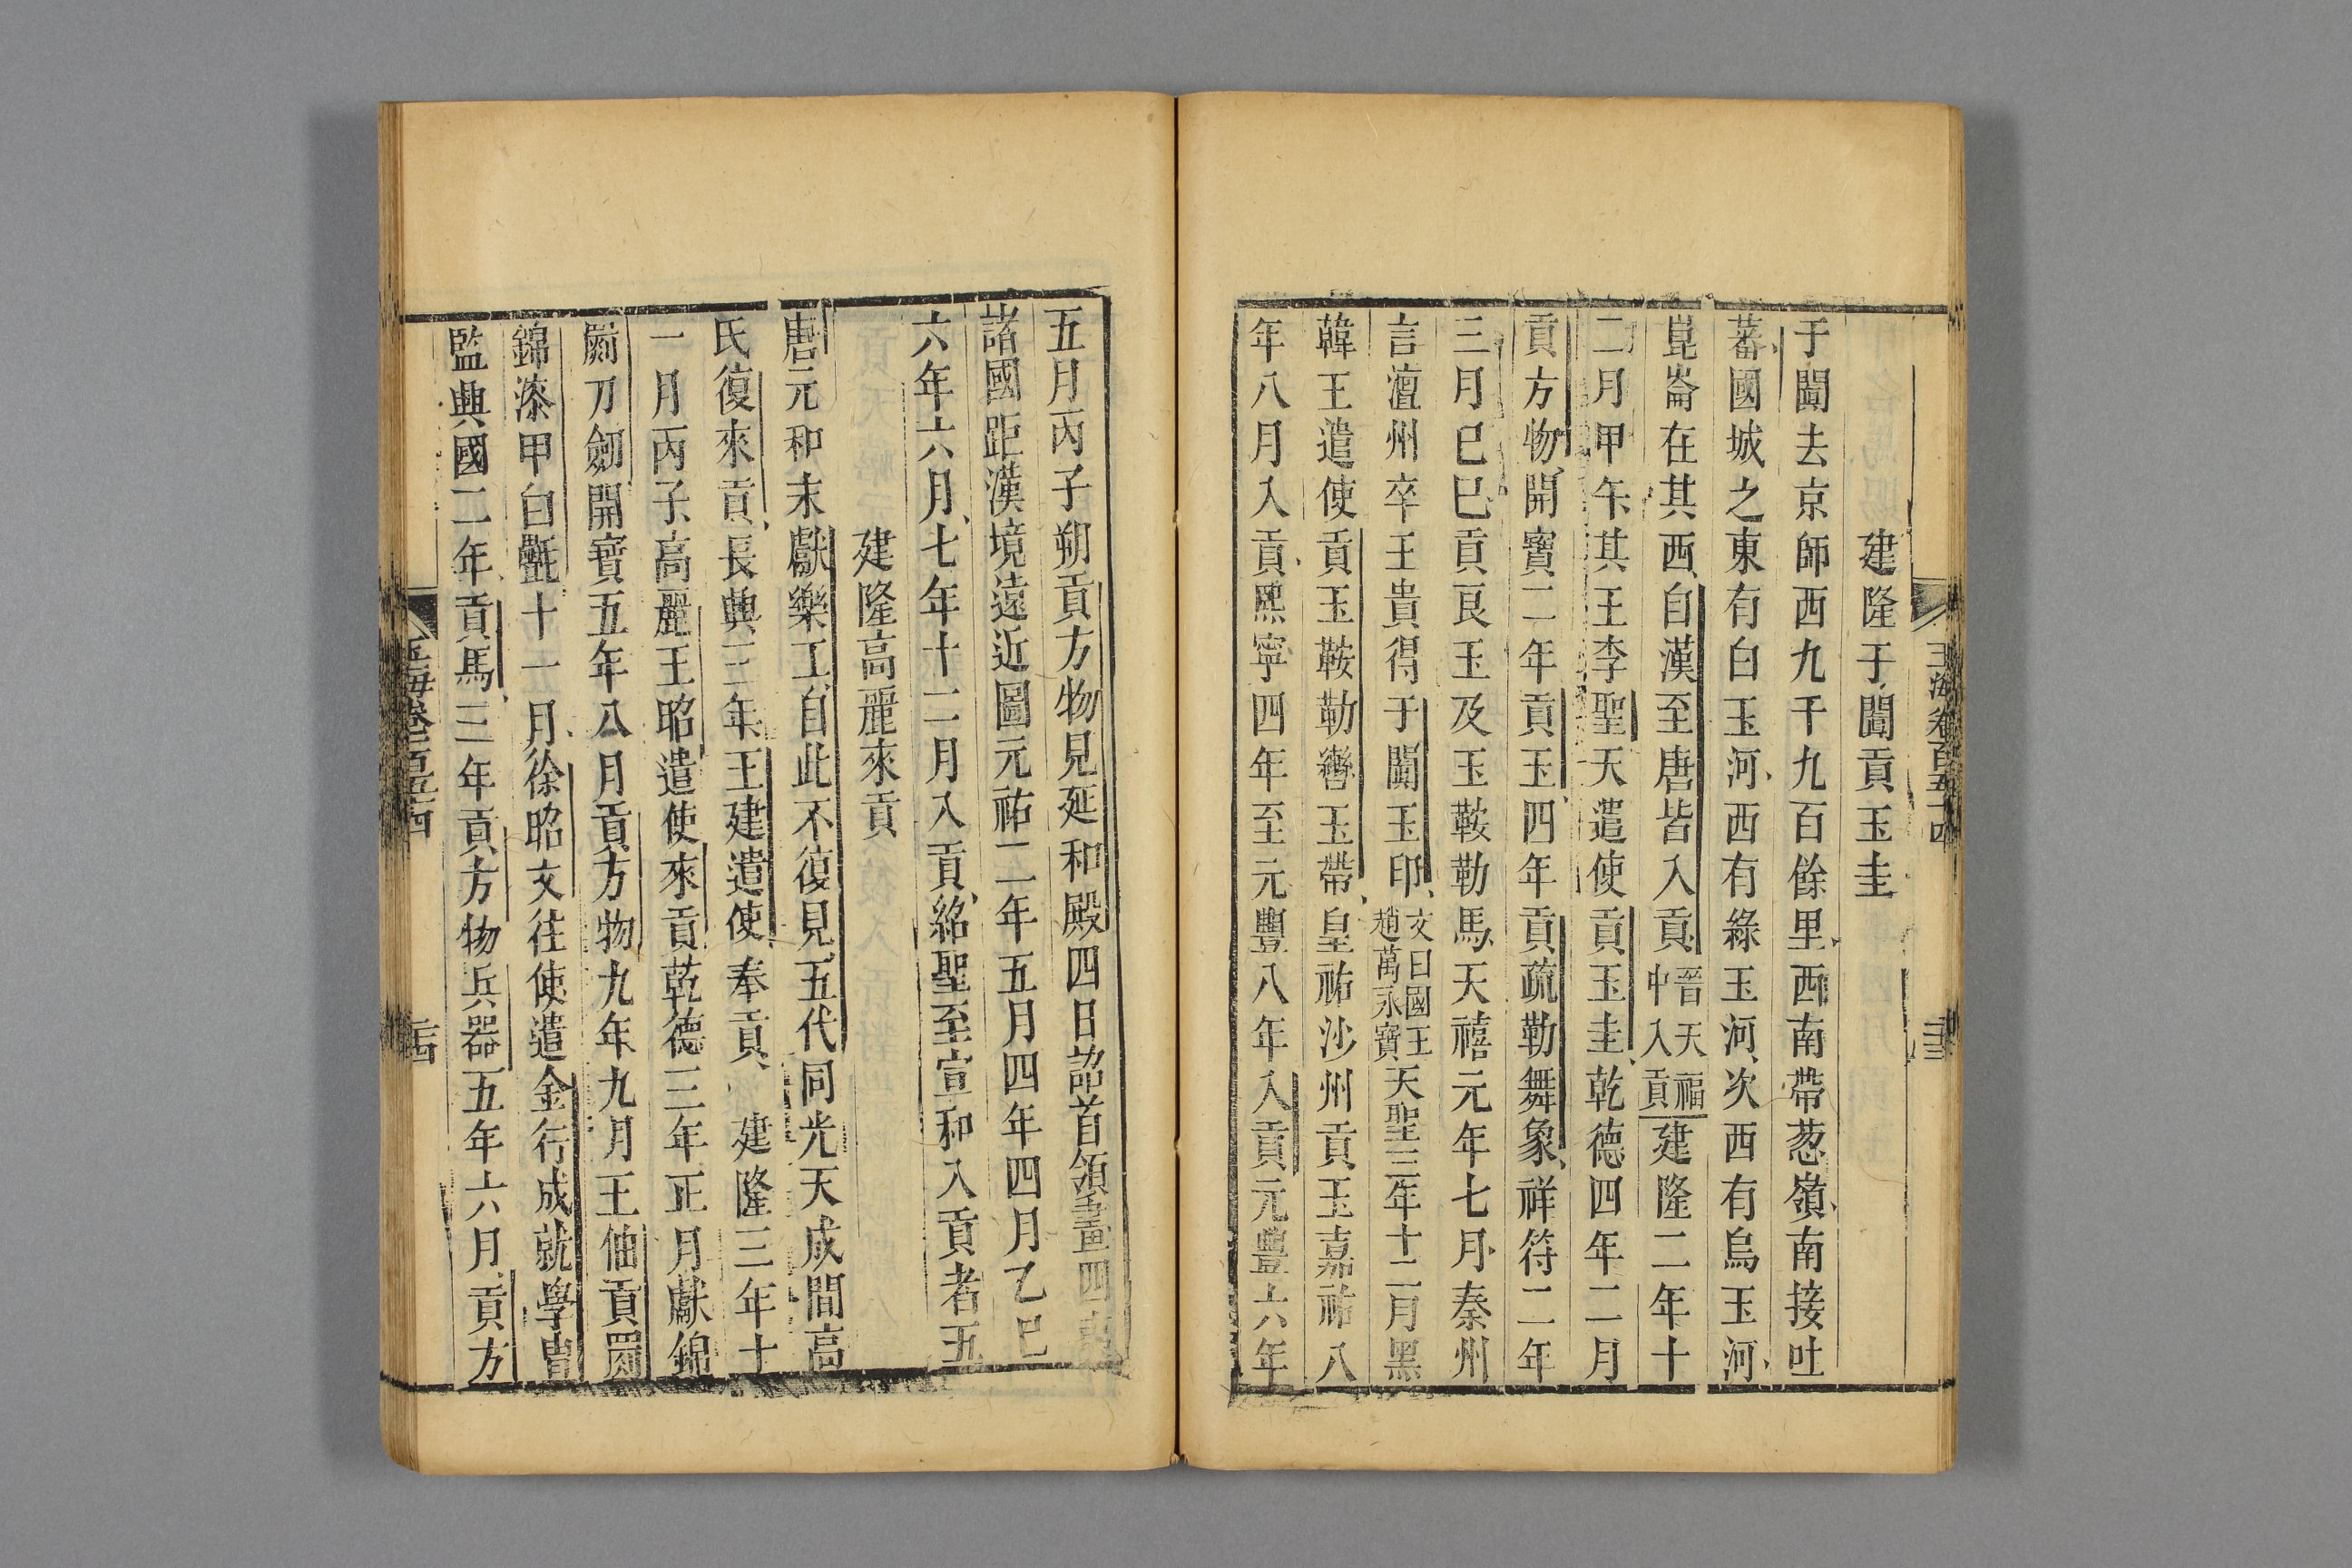 玉海卷百五十四
建隆于闐貢玉圭
于闐去京師西九千九百餘里西南帶葱嶺南接吐
蕃國城之東有白玉河西有綠玉河次西有烏玉河
崑崙在其西自漢至唐皆入貢晉天福中入貢建隆二年十
二月甲午其王李聖天遣使貢玉圭乾德四年二月
貢方物開寶二年貢玉四年貢疏勒舞象祥符二年
三月巳巳貢良玉及玉鞍勒馬天禧元年七月秦州
言澶州卒王貴得于闐玉印文曰國王趙萬永寶天聖三年十二月黑
韓王遣使貢玉鞍勒轡玉帶皇祐沙州貢玉嘉祐八
年八月入貢熙寧四年至元豐八年入貢元豐六年
五月丙子朔貢方物見延和殿四日詔首領畫四
諸國距漢境遠近圖元祐二年五月四年四月乙巳
六年六月七年十二月入貢紹聖至宣和入貢者五
建隆高麗來貢
唐元和末獻樂工自此不復見五代同光天成間高
氏復來貢長興三年王建遣使奉貢 建隆三年十
一月丙子高麗王昭遣使來貢乾德三年正月獻錦
罽刀劒開寶五年八月貢方物九年九月王伷貢罽
錦漆甲白㲲十一月徐昭文往使遣金行成就學曺
監興國二年貢馬三年貢方物兵器五年六月貢方
玉海卷一百五十四
二十四